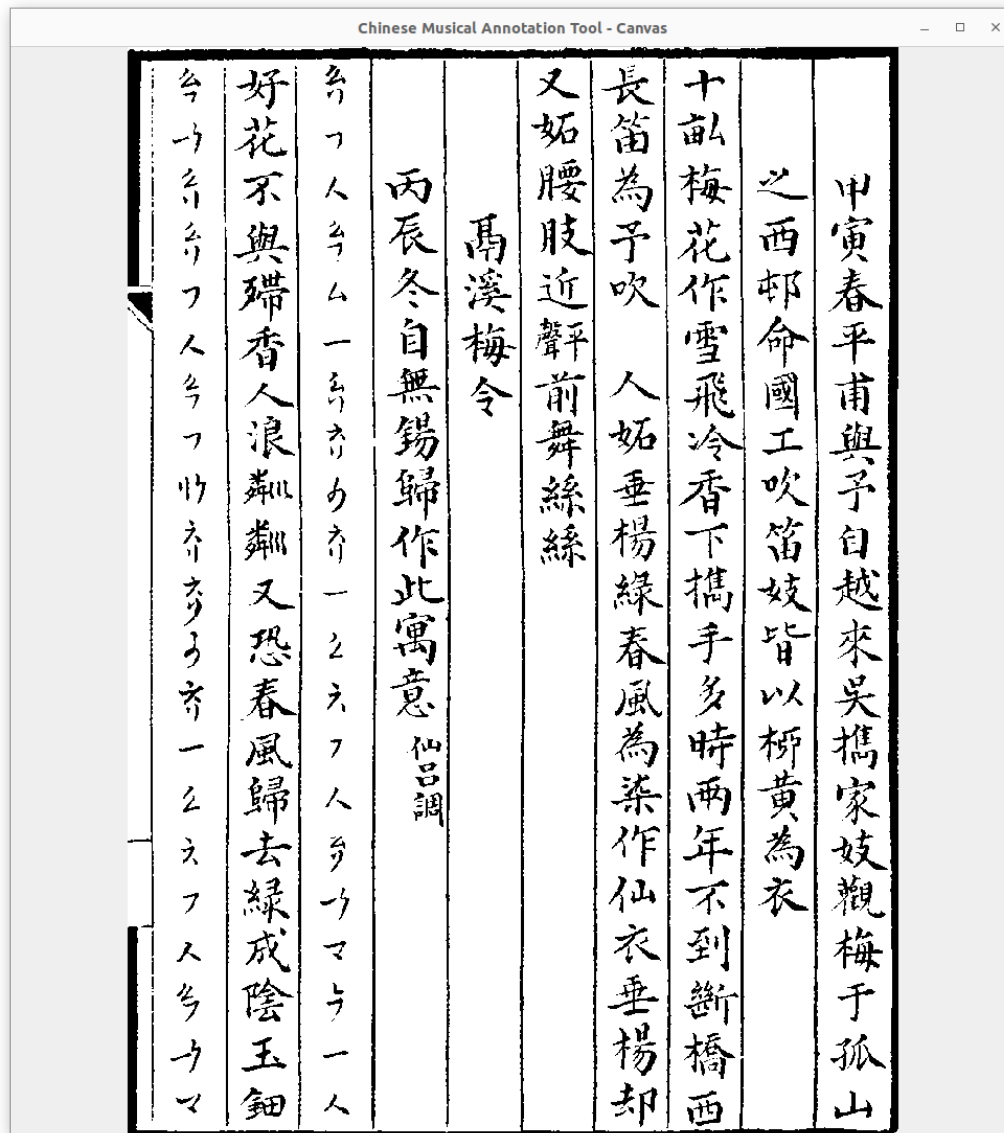 Chinese Musical Annotation Tool - Canvas
甲寅春平甫與予自越來吳擕家妓觀梅于孤山
之西邨命國工吹笛妓皆以桺黃為衣
十畒梅花作雪飛冷香下擕手多時兩年不到斷橋西
長笛為予吹　人妬垂楊綠春風為染作仙衣垂楊却
又妬腰肢近平聲前舞絲絲
鬲溪梅令
丙辰冬自無錫歸作此寓意仙呂調
好花不與殢香人浪粼粼又恐春風歸去緑成陰玉鈿